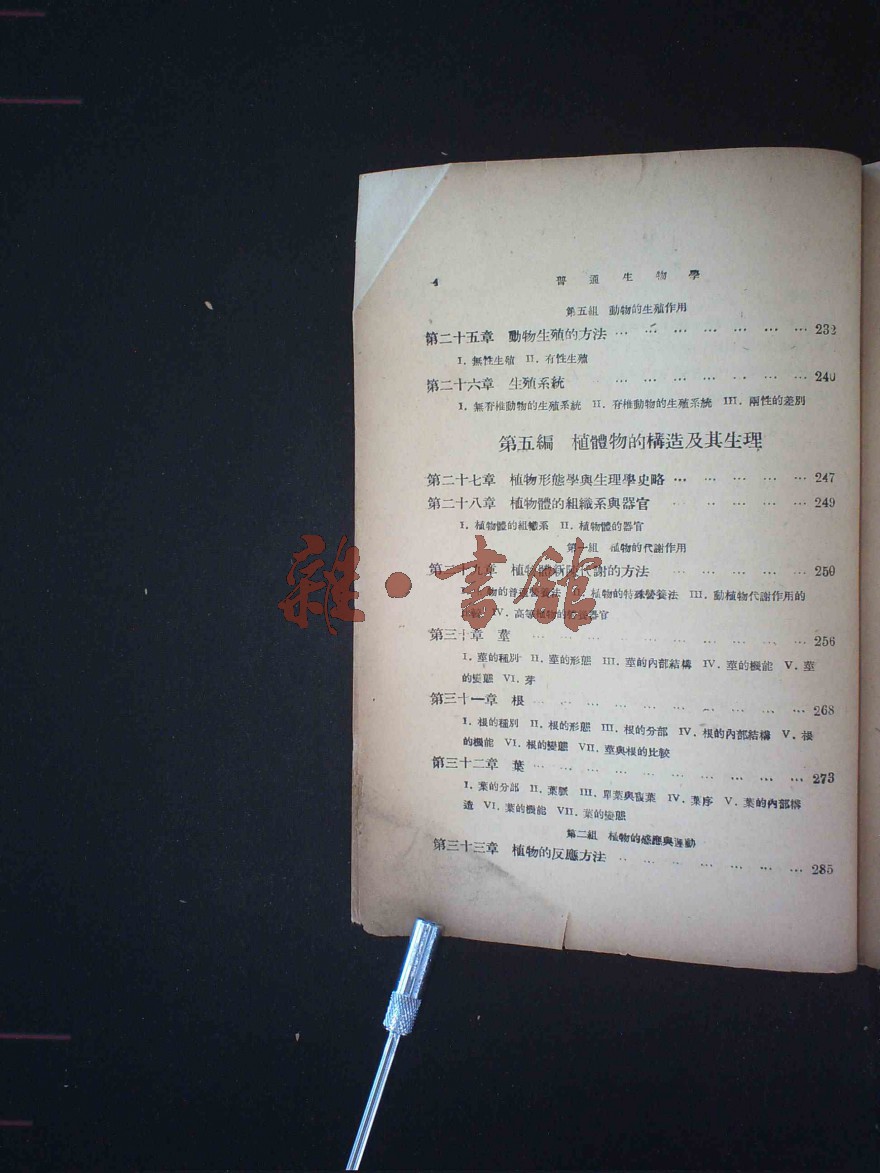 4 普通生物學
第五組 動物的生殖作用
第二十五章 動物生殖的方法 … … … … … … … … 232
I. 無性生殖 II. 有性生殖
第二十六章 生殖系統 … … … … … … … 240
I. 無脊椎動物的生殖系統 II. 脊椎動物的生殖系統 III. 兩性的差別
第五編 植體物的構造及其生理
第二十七章 植物形態學與生理學史略 … … … … … … 247
第二十八章 植物體的組織系與器官 … … … … … 249
I. 植物體的組織系 II. 植物體的器官
第一組 植物的代謝作用
第二十九章 植物體新陳代謝的方法 … … … … … 250
物的普通營養法 II. 植物的特殊營養法 III. 動植物代謝作用的
IV. 高等植物的營養器官
第三十章 莖 … … … … … … … … … … 256
I. 莖的種別 II. 莖的形態 III. 莖的內部結構 IV. 莖的機能 V. 莖
的變態 VI. 芽
第三十一章 根 … … … … … … … … … … 268
I. 根的種別 II. 根的形態 III. 根的分部 IV. 根的內部結構 V. 根
的機能 VI. 根的變態 VII. 莖與根的比較
第三十二章 葉 … … … … … … … … … … 273
I. 葉的分部 II. 葉脈 III. 單葉與複葉 IV. 葉序 V. 葉的內部構
造 VI. 葉的機能 VII. 葉的變態
第二組 植物的感應與運動
第三十三章 植物的反應方法 … … … … … … … … 285
雜·書館